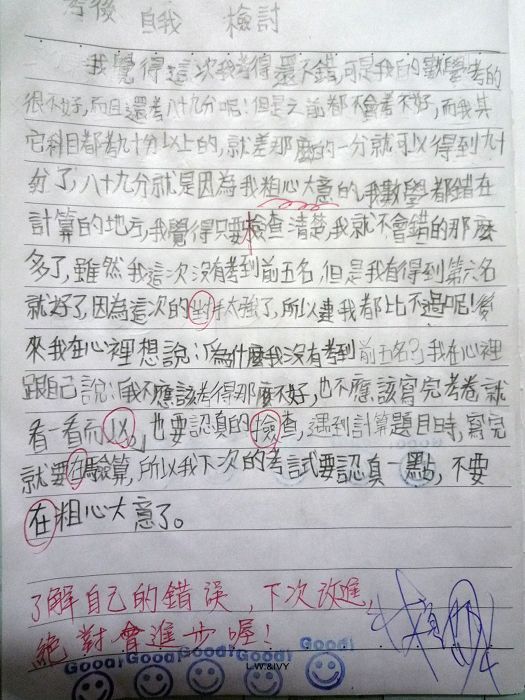 考後 自我 檢討
我覺得這次我考得還不錯,可是我的數學考的
很不好,而且還考八十九分呢!但是之前都不會考不好,而我其
它科目都考九十分以上的,就差那麼的一分就可以得到九十
分了,八十九分就是因為我粗心大意的,我數學都錯在
計算的地方,我覺得只要檢查清楚,我就不會錯的那麼
多了,雖然我這次沒有考到前五名,但是我有得到第六名
就好了因為這次的對手太強了,所以連我都比不過呢!後
來我在心裡想說:「為什麼我沒有考到前五名?」我在心裡
跟自己說:「我不應該考得那麼不好,也不應該寫完考卷就
看一看而以。」也要認真的撿查,遇到計算題目時,寫完
就要在驗算,所以我下次的考試要認真一點,不要
在粗心大意了。
了解自己的錯誤,下次改進,
絕對會進步喔!
Good! Good! Good! Good! Good! Good!
L.W.&IVY